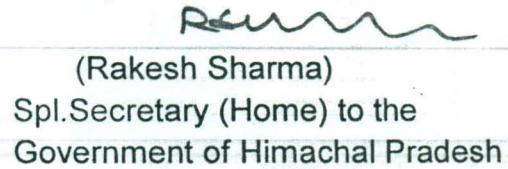 (Rakesh Sharma)
Spl.Secretary (Home) to the
Government of Himachal Pradesh